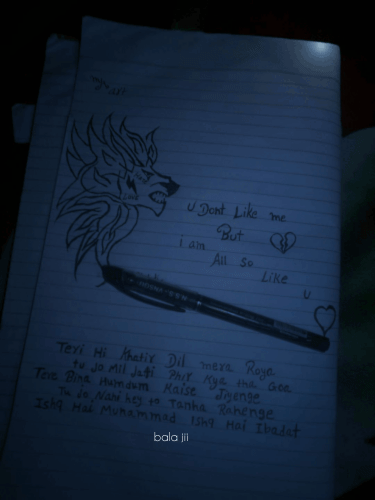 U Dont Like me
But
i am
All So
Like
U
Teri Hi Khatir Dil mera Roya
tu Jo Mil Jati Phir Kya tha Goa
Tere Bina Humdam Kaise Jiyenge
Tu Jo Nahi hey to Tanha Rahenge
Ishq Hai Muhammad Ishq Hai Ibadat
bala jii